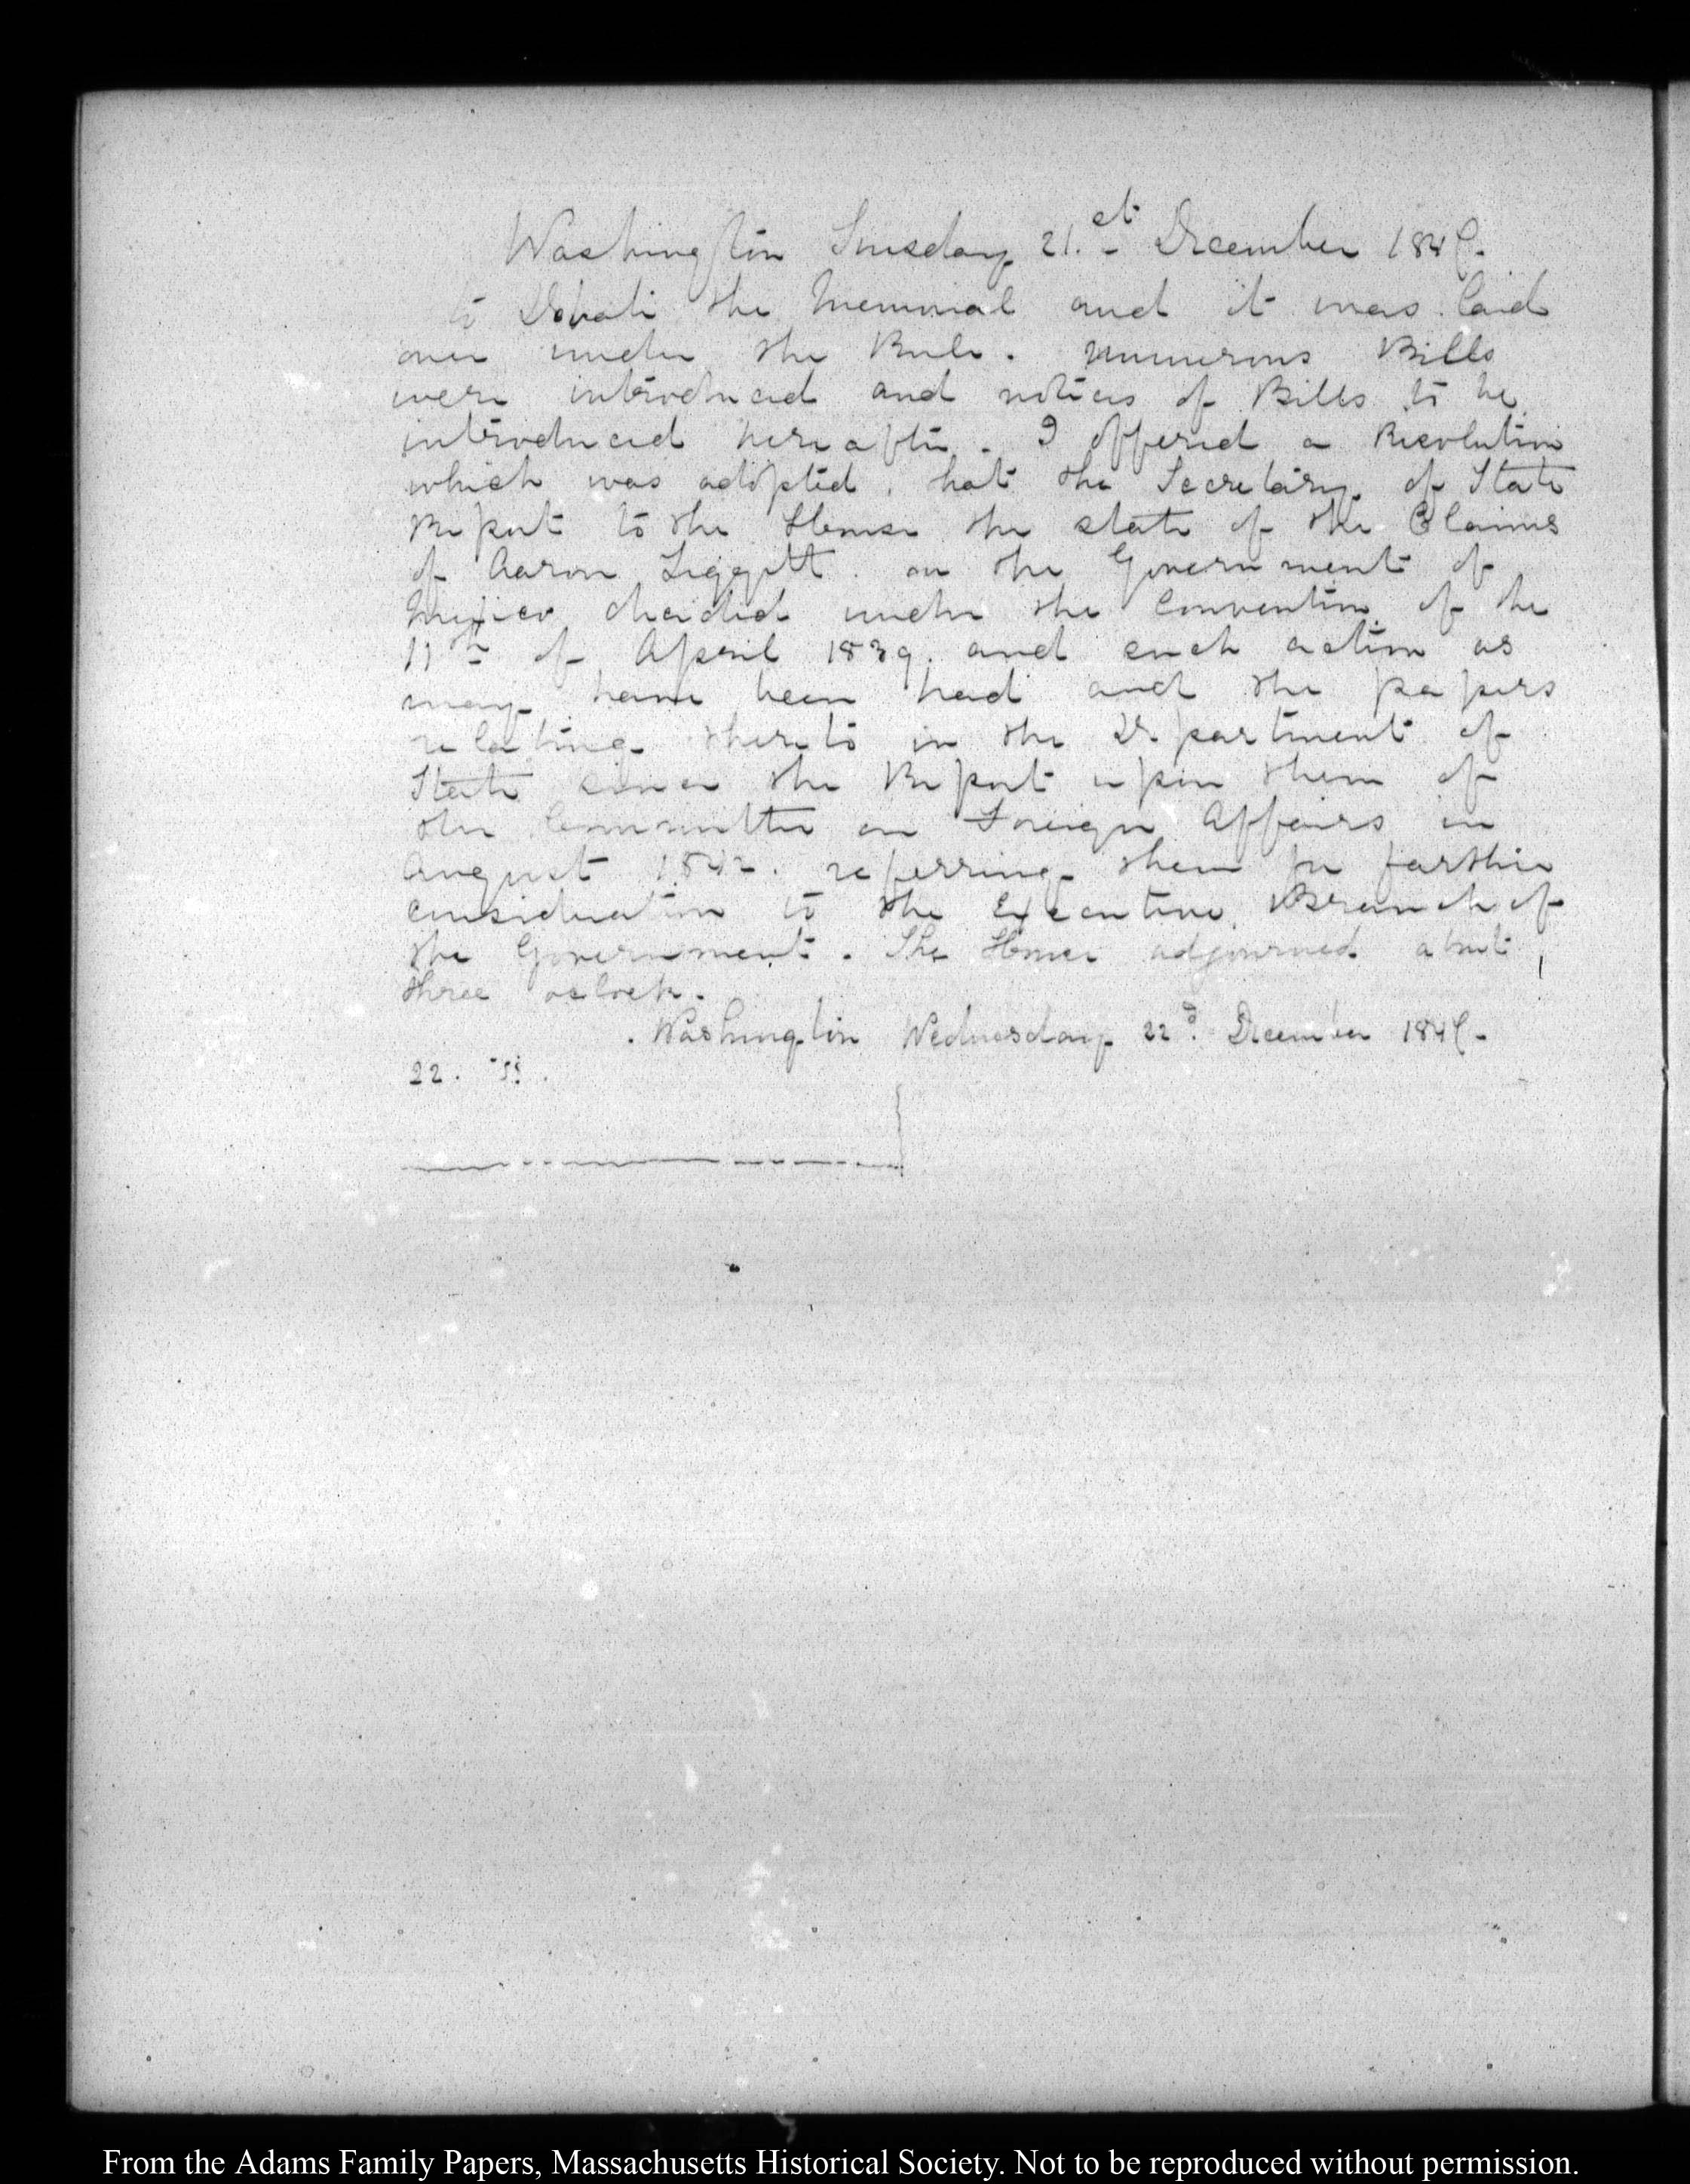 Washington Tuesday 21.st December 1847.
to Debate the Memorial and it was laid
over under the Rule. numerous Bills
were introduced and notices of Bills to be
introduced hereafter. I offered a Resolution
which was adopted. that the Secretary of State
Report to the House the state of the Claims
of Aaron Leggett. on the Government of
Mexico decided under the Convention of the
11th of April 1839. and such action as
may have been had and the papers
relating thereto in the Department of
State since the Report upon them of
the Committee on Foreign Affairs in
August 1842. referring them for farther
consideration to the Executive Branch of
the Government. The House adjourned about
three oclock.
Washington Wednesday 22d. December 1847.
22.
From the Adams Family Papers, Massachusetts Historical Society. Not to be reproduced without permission.